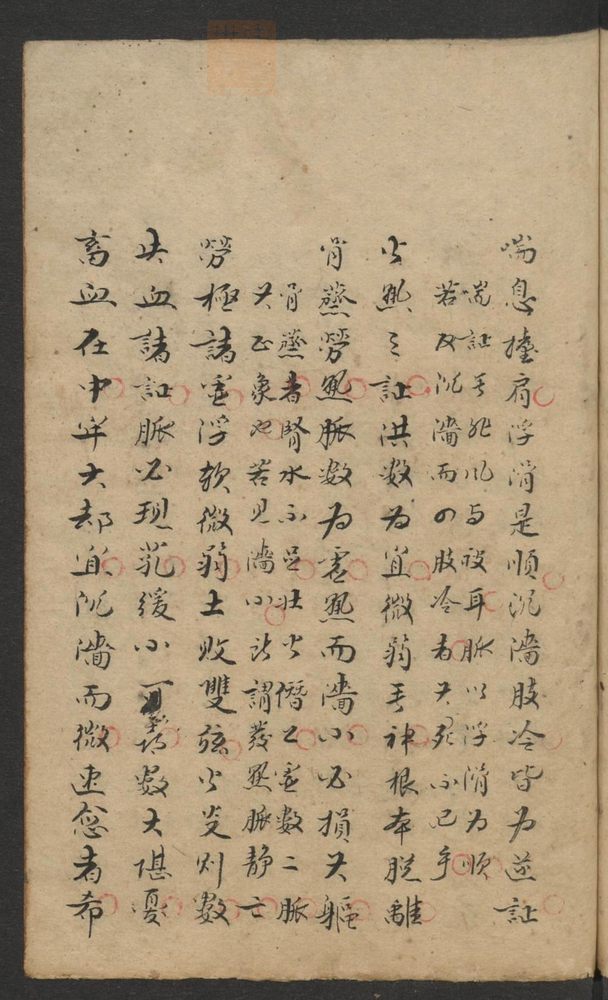 喘息擡肩浮滑是順沉濇肢冷皆為逆証
喘証无非風与痰耳脈以浮滑為順
若反沉濇而四肢冷者其死不已乎
火热之証洪数為宜微弱无神根本脱離
骨蒸勞热脈数為虚热而濇小必損其軀
骨蒸者腎水不足壮火僭之虚数二脈
其正象也若見濇小所謂發热脈静亡
勞極諸虚浮软微弱土敗雙弦火炎則数
失血諸証脈必現芤缓小可喜数大堪憂
畜血在中牢大却宜沉濇而微速愈者希